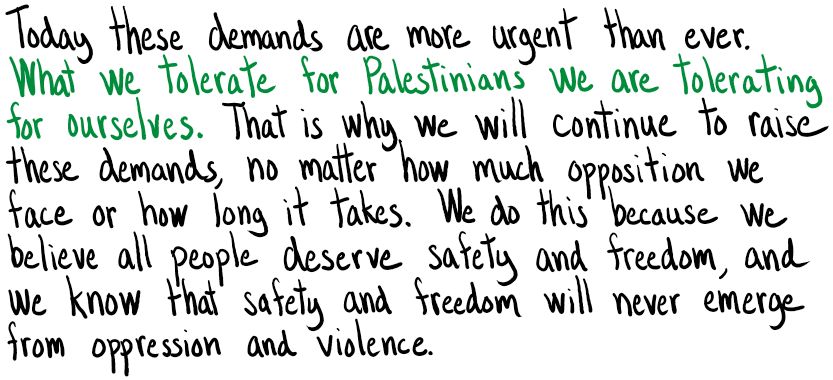 Today these demands are more urgent than ever.
What we tolerate for Palestinians we are tolerating
for ourselves. That is why we will continue to raise
these demands, no matter how much opposition we
face or how long it takes. We do this because we
believe all people deserve safety and freedom, and
we know that safety and freedom will never emerge
from oppression and violence.